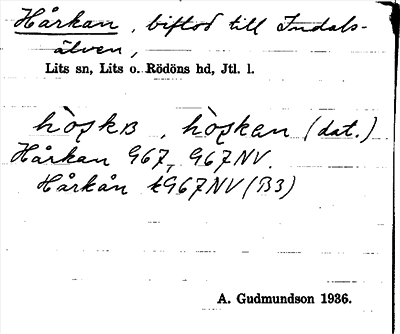 Hårkan, biflod till Indals-
älven,
Lits sn, Lits o. Rödöns hd, Jtl. l.
hòşkʙ, hòşkan (dat.)
Hårkan G67, G67NV.
Hårkån tG67NV (B3)
A. Gudmundson 1936.